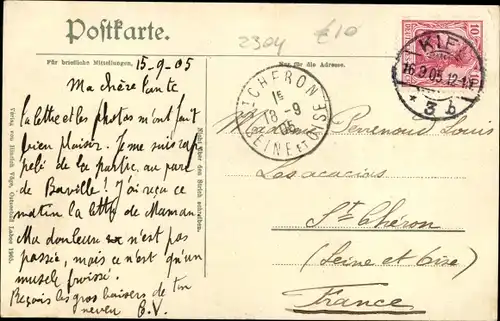 Postkarte.
2304
€10
Für briefliche Mitteilungen.
Nur für die Adresse.
15-9-05
Ma chère tante
ta lettre et les photos m'ont fait
bien plaisir. Je me suis rap-
pelé de la partie, au parc
de Baville! J'ai reçu ce
matin la lettre de Maman.
Ma douleur n'est pas
passée, mais ce n'est qu'un
muscle froissé.
Reçois les gros baisers de ton
neveu B.V.
Nicht über den Strich schreiben.
ST CHERON
1e
18-9
05
SEINE ET OISE
10
KIEL
16.9.05.12-1
* 3 b
Madame Louis
Les acacias
St Chéron
(Seine et Oise)
France